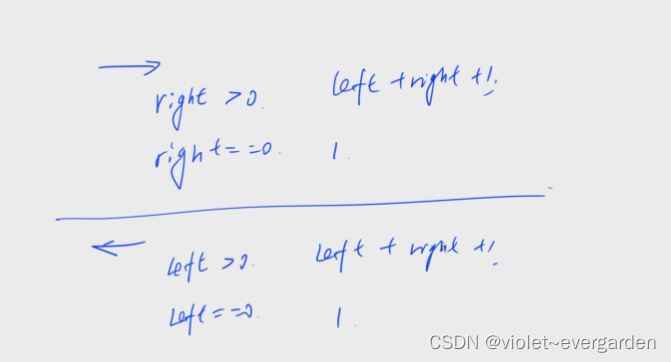 right >0. left + right +1.
right==0. 1.
left >0. left + right +1.
left==0. 1.
CSDN @violet~evergarden